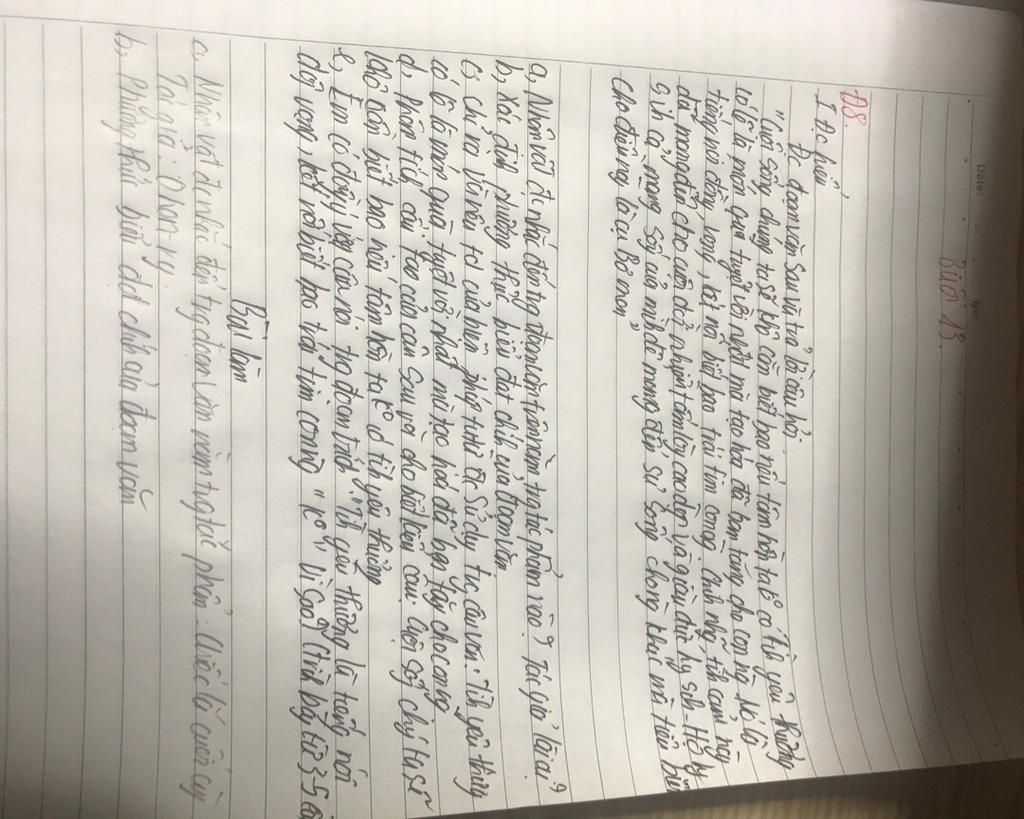 Date:
No:
Buổi 13.
Đ8.
I Đọc hiểu
Đc đoạn văn sau và trả lời câu hỏi
"Cuộc sống chúng ta sẽ khô cằn biết bao nếu tâm hồn ta k° có tình yêu thương
có lẽ là món quà tuyệt vời nhất mà tạo hóa đã ban tặng cho con ng. Nó là
tiếng nói đồng vọng, kết nối biết bao trái tim
đã mang đến cho cụ nhiều tấm lòng cao đẹp và giàu đức hy sinh
sinh cả mạng sống của mình để mang đến sự sống cho
cho đi là cụ Bơ men"
a, Nhân vật đc nhắc đến trg đoạn văn trên nằm trg tác phẩm nào? Tác giả là ai?
b, Xác định phương thức biểu đạt chính của đoạn văn
c, chỉ ra và nêu td của biện pháp tu từ đc sử dụng trg câu văn: Tình yêu thương
có lẽ là món quà tuyệt vời nhất mà tạo hoá đã ban tặng cho con ng
d, Phân tích cấu tạo của câu sau và cho biết kiểu câu: Cuộc sống chúng ta sẽ
khô cằn biết bao nếu tâm hồn ta k° có tình yêu thương
e, Em có đồng ý với câu nói trg đoạn trích "Tình yêu thương là tiếng nói
đồng vọng, kết nối biết bao trái tim con ng" k°? Vì sao? Trình bày từ 3-5 câu
Bài làm
a, Nhân vật đc nhắc đến trg đoạn văn nằm trg tác phẩm: Chiếc lá cuối cùng
Tác giả: O hen-ry.
b, Phương thức biểu đạt chính của đoạn văn